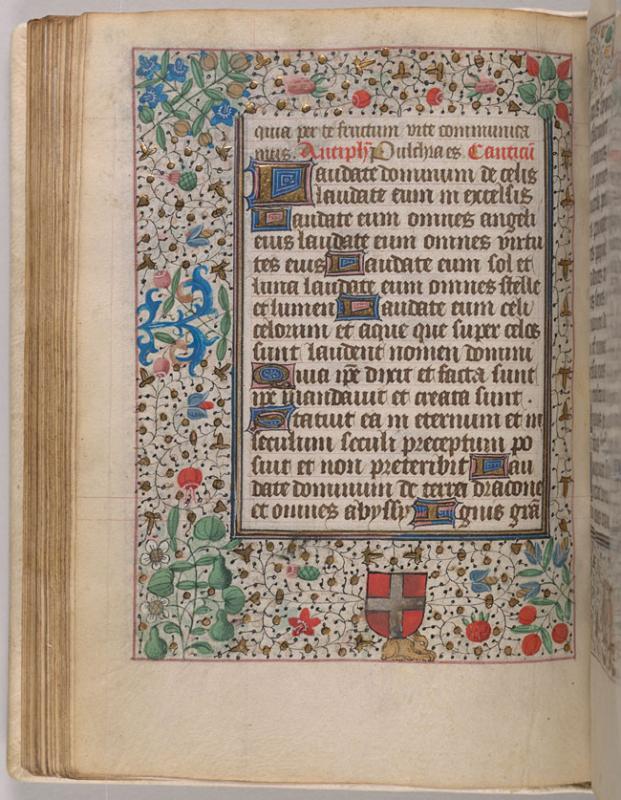 quia per te fructum vite communica
mus. Antiph Pulchra es. Canticũ
Laudate dominum de celis
laudate eum in excelsis
Laudate eum omnes angeli
eius laudate eum omnes virtu
tes eius Laudate eum sol et
luna laudate eum omnes stelle
et lumen Laudate eum celi
celorum et aque que super celos
sunt laudent nomen domini
Quia ip̃e dixit et facta sunt
ip̃e mandavit et creata sunt .
Statuit ea in eternum et in
seculum seculi preceptum po
suit et non preteribit Lau
date dominum de terra dracone
et omnes abyssy Ignis grã